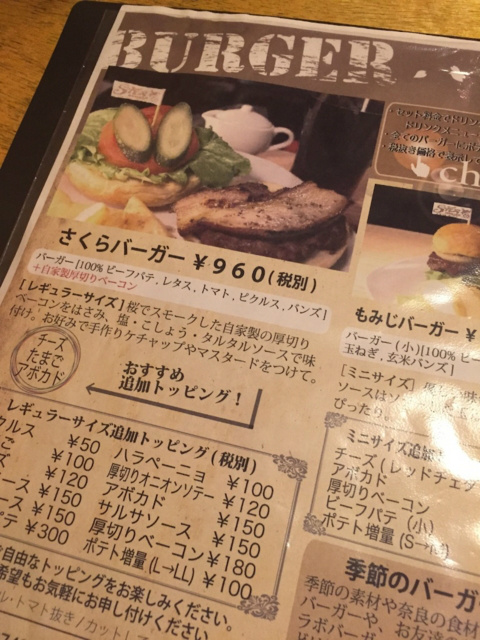 BURGER
さくらバーガー ¥960(税別)
バーガー[100%ビーフパテ、レタス、トマト、ピクルス、バンズ]
+自家製厚切りベーコン
[レギュラーサイズ]桜でスモークした自家製の厚切り
ベーコンをはさみ、塩・こしょう・タルタルソースで味
付け。お好みで手作りケチャップやマスタードをつけて。
チーズ
たまご
アボカド
おすすめ
追加トッピング!
レギュラーサイズ追加トッピング(税別)
クルス ¥50
ご ¥100
ズ ¥120
ース ¥150
ース ¥150
パテ ¥300
ハラペーニョ ¥100
厚切りオニオンソテー ¥120
アボカド ¥150
サルサソース ¥150
厚切りベーコン ¥180
ポテト増量(L→LL) ¥100
自由なトッピングをお楽しみください。
希望もお気軽にお申し付けください。
ル・トマト抜き/カット
セット料金でドリン
ドリンクメニュー
全てのバーガーにポ
税抜き価格で表示し
ch
もみじバーガー ¥
バーガー(小)[100%ビー
玉ねぎ、玄米バンズ]
[ミニサイズ]
ソースは
ぴったり。
ミニサイズ追加
チーズ(レッドチェッ
アボカド
厚切りベーコン
ビーフパテ(小)
ポテト増量(S→
季節のバーガ
季節の素材や奈良の食材
バーガーや、お
ラボバー